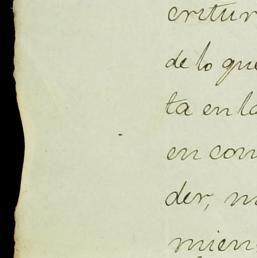 critur
de lo que
ta en la
en con
der, m
mien